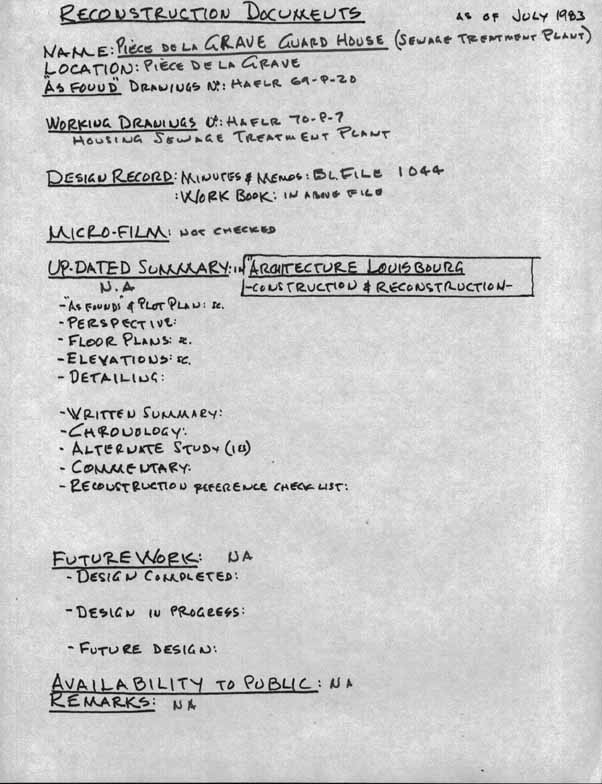 RECONSTRUCTION DOCUMENTS AS OF JULY 1983
NAME: PIÈCE DE LA GRAVE GUARD HOUSE (SEWAGE TREATMENT PLANT)
LOCATION: PIÈCE DE LA GRAVE
"AS FOUND" DRAWINGS No: HAFLR 69-P-20
WORKING DRAWINGS No: HAFLR 70-P-7
HOUSING SEWAGE TREATMENT PLANT
DESIGN RECORD: MINUTES & MEMOS: BL.FILE 1044
: WORK BOOK: IN ABOVE FILE
MICRO-FILM: NOT CHECKED
UP-DATED SUMMARY: IN "ARCHITECTURE LOUISBOURG
-CONSTRUCTION & RECONSTRUCTION-
N.A
-"AS FOUNDS" & PLOT PLAN: SC.
-PERSPECTIVE:
-FLOOR PLANS: SC.
-ELEVATIONS: SC.
-DETAILING:
-WRITTEN SUMMARY:
-CHRONOLOGY:
- ALTERNATE STUDY (IES)
- COMMENTARY:
- RECONSTRUCTION REFERENCE CHECK LIST:
FUTURE WORK: NA
- DESIGN COMPLETED:
-DESIGN IN PROGRESS:
- FUTURE DESIGN:
AVAILABILITY TO PUBLIC: NA
REMARKS: NA